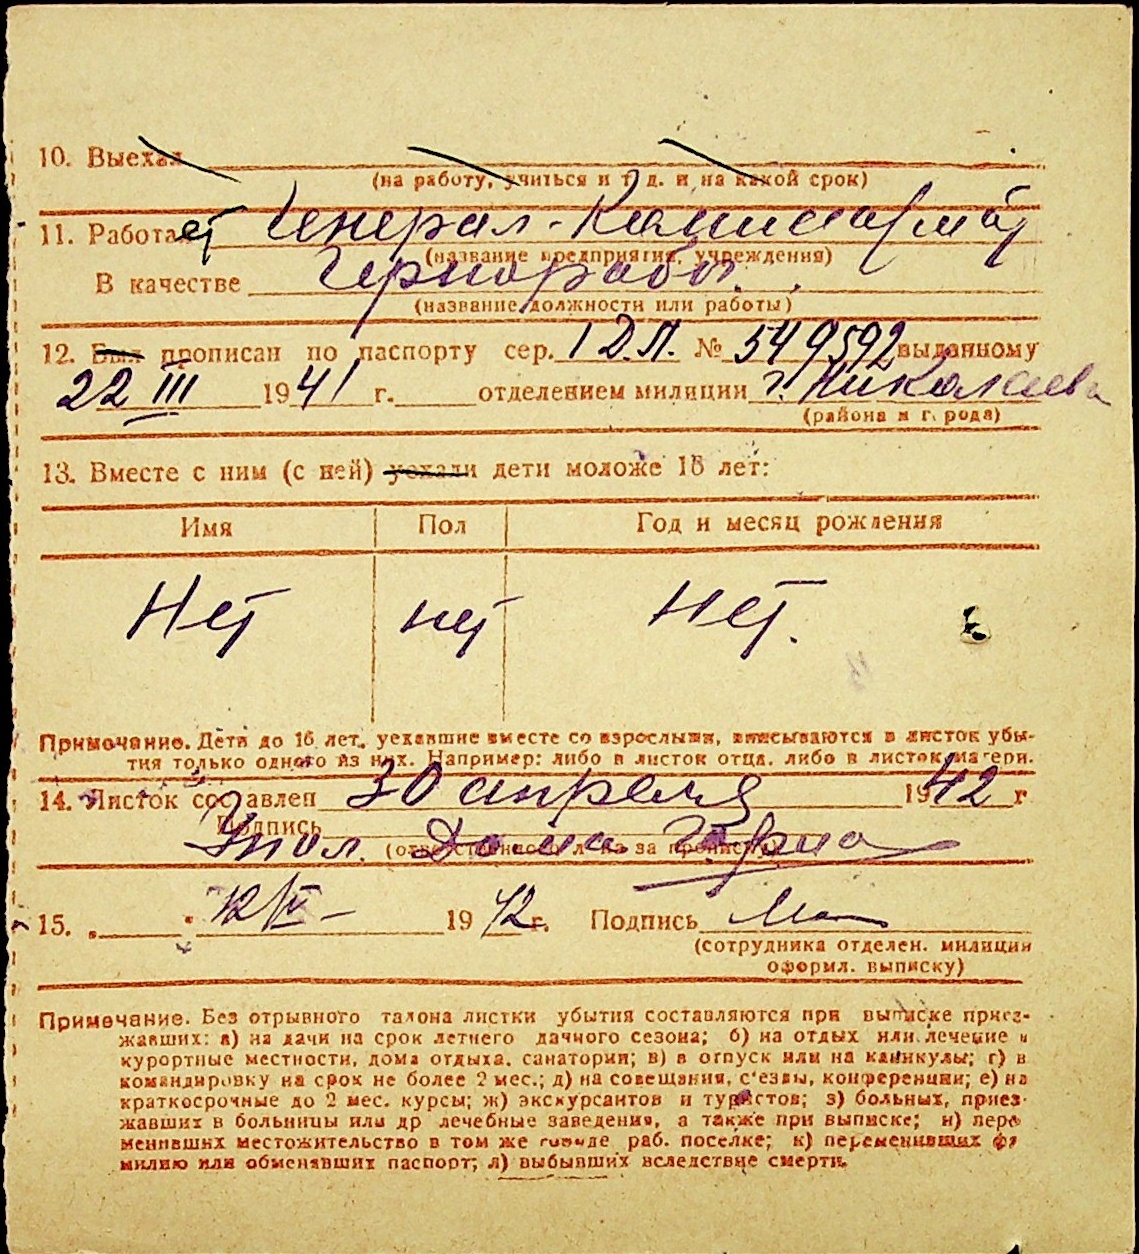 10. Выехал
(на работу, учиться и т д. и на какой срок)
11. Работает Генерал-Комиссариат
(название предприятия, учреждения)
В качестве Чернорабоч.
(название должности или работы)
12. Был прописан по паспорту сер. I Д.Л. № 549592 выданному
22 III 1941 г. отделением милиции г. Николаева
(района и города)
13. Вместе с ним (с ней) уехали дети моложе 16 лет:
Имя Пол Год и месяц рождения
Нет нет Нет.
Примечание. Дети до 16 лет, уехавшие вместе со взрослыми, вписываются в листок убы-
тия только одного из них. Например: либо в листок отца, либо в листок матери.
14. Листок составлен 30 апреля 1942 г
Подпись
Упол. Дома
(ответственного лица за прописку)
15. 1942 г. Подпись
(сотрудника отделен. милиции
оформл. выписку)
Примечание. Без отрывного талона листки убытия составляются при выписке приез-
жавших: а) на дачи на срок летнего дачного сезона; б) на отдых или лечение в
курортные местности, дома отдыха, санатории; в) в отпуск или на каникулы; г) в
командировку на срок не более 2 мес.; д) на совещания, с'езды, конференции; е) на
краткосрочные до 2 мес. курсы; ж) экскурсантов и туристов; з) больных, приез-
жавших в больницы или др лечебные заведения, а также при выписке; и) пере
менивших местожительство в том же городе раб. поселке; к) переменивших фа
милию или обменявших паспорт; л) выбывших вследствие смерти.